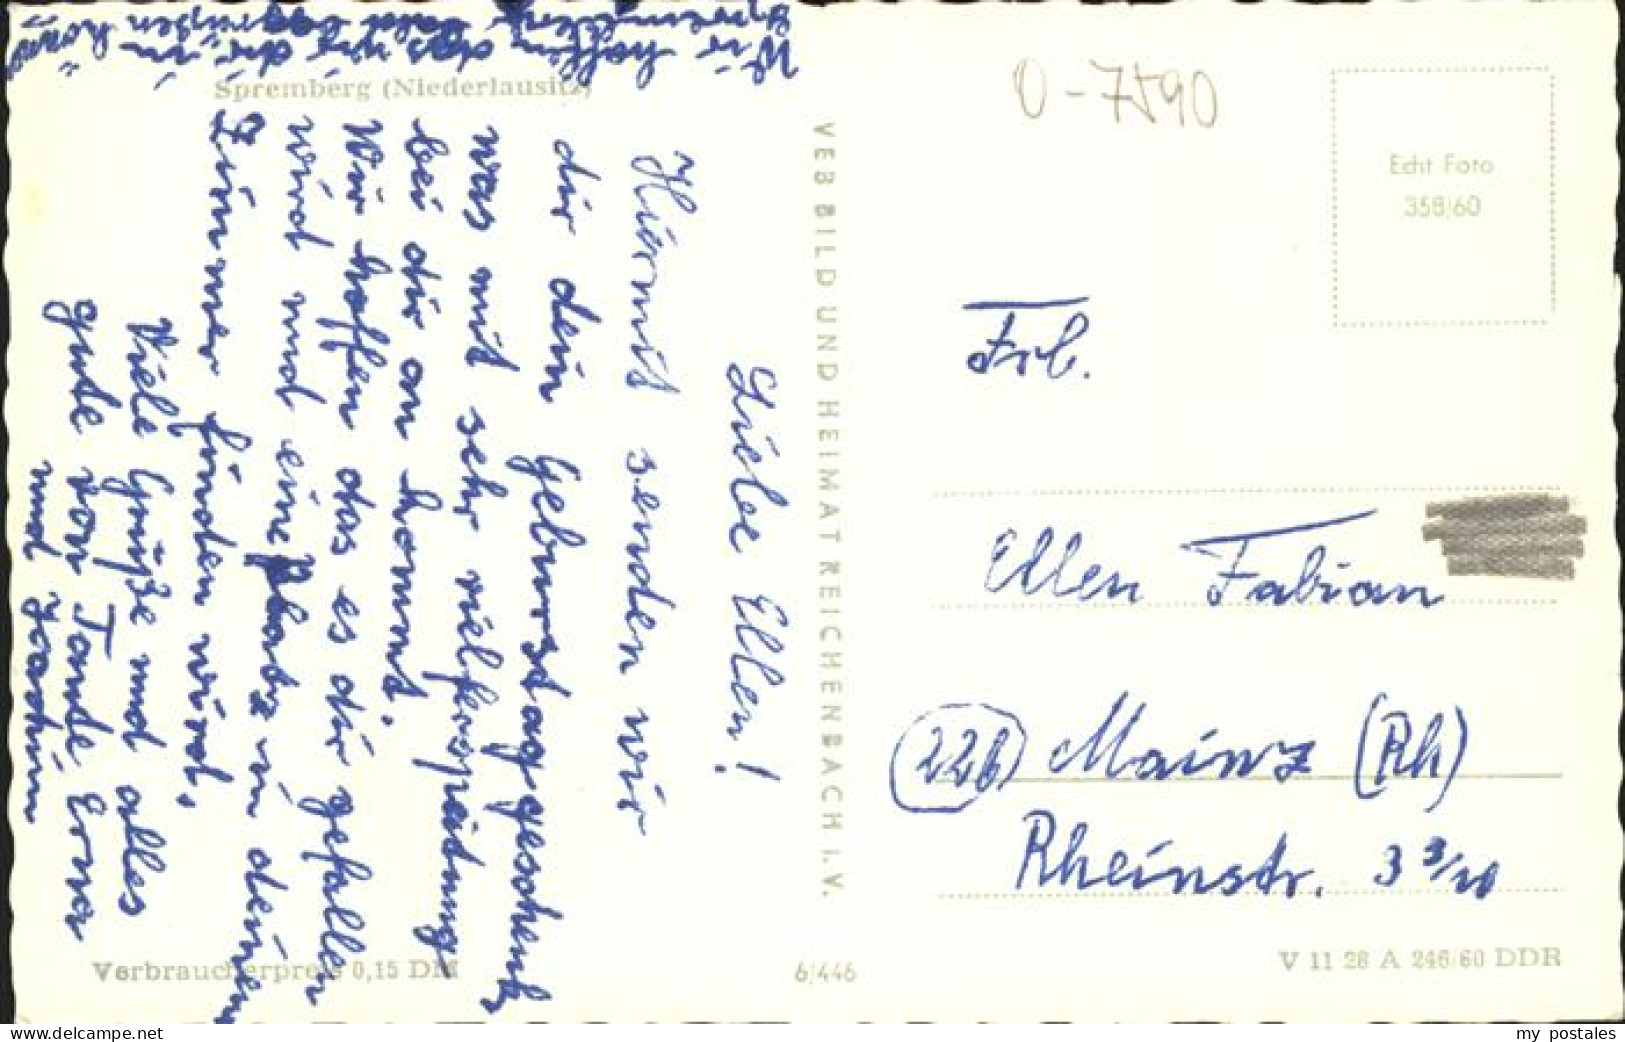 Spremberg (Niederlausitz)
Liebe Ellen!
Hiermit senden wir
dir dein Geburstaggeschenk
was mit sehr vielferspeitung
bei dir an kommt.
Wir hoffen das es dir gefallen
wird und eine Platz in deinem
Zimmer finden wird.
Viele Grüße und alles
gute von Tante Erna
und Joachim
Wir hoffen das wir dir in
Spremberg bald begrüßen
Verbraucherpreis 0,15 DM
VEB BILD UND HEIMAT REICHENBACH I. V.
6/446
O-7590
Echt Foto
358/60
Frl.
Ellen Fabian
(22b) Mainz (Rh)
Rheinstr. 3 3/10
V 11 28 A 246/60 DDR
my postales
www.delcampe.net